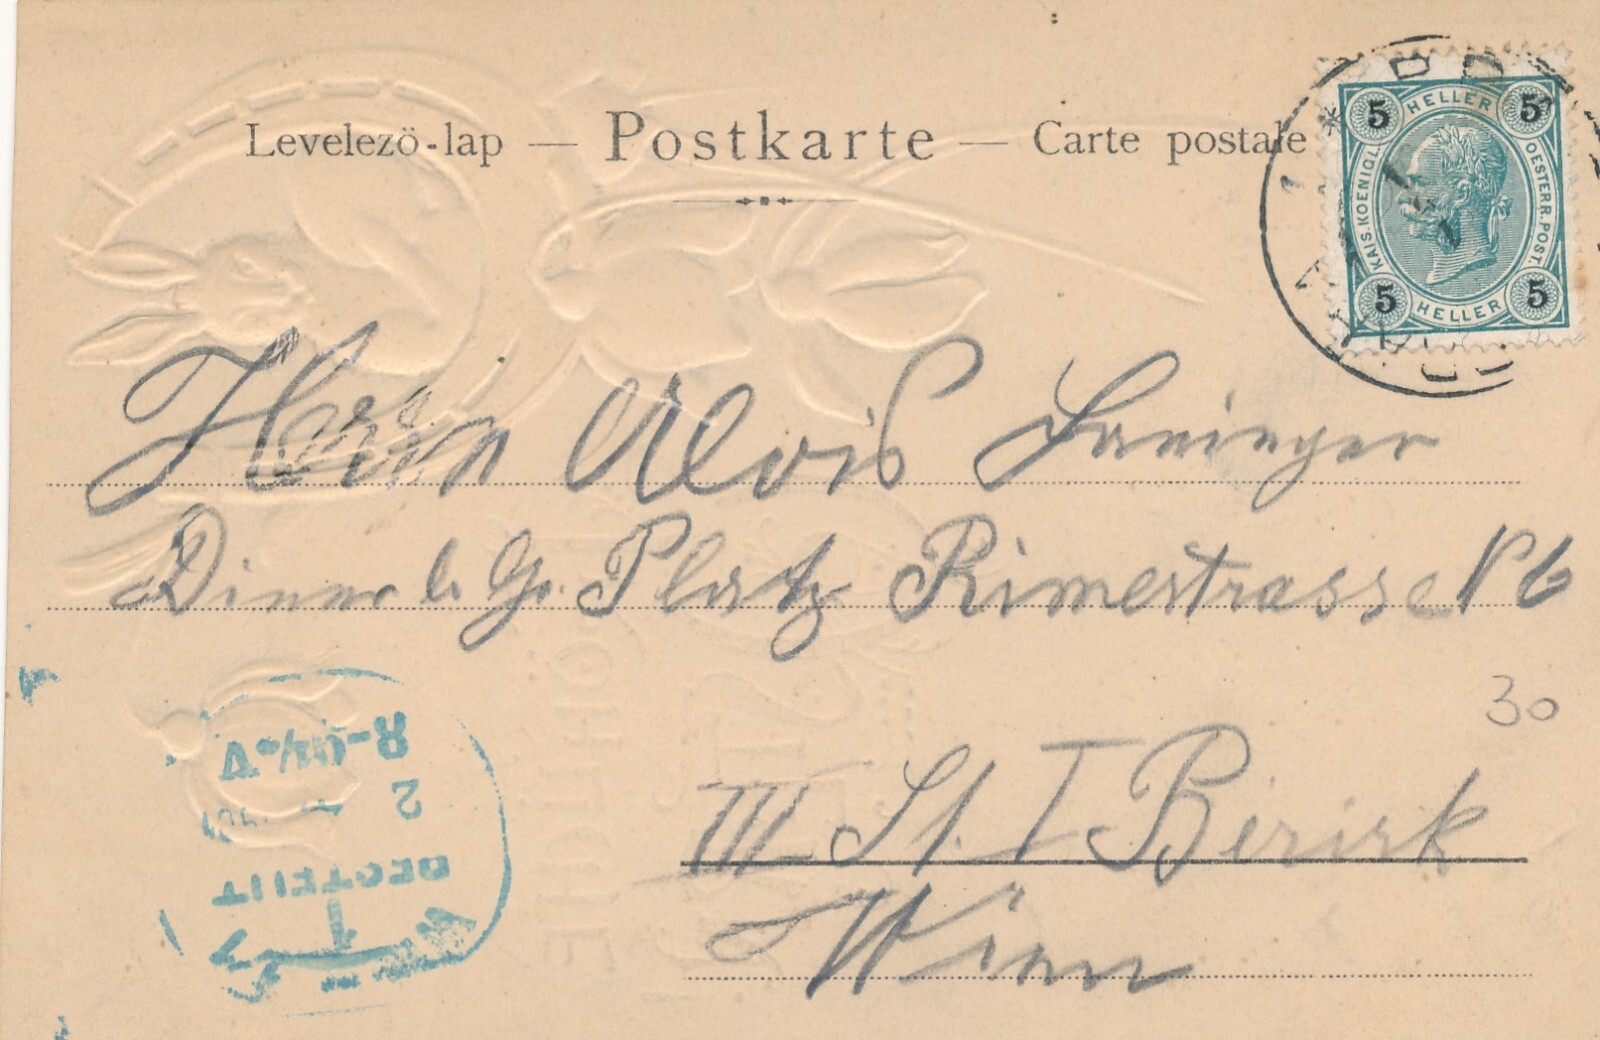 Levelező-lap — Postkarte — Carte postale
5 HELLER 5
KAIS. KOENIGL. OESTERR. POST.
5 HELLER 5
Herrn Alois
Diener b. Gr. Platz Rimerstrasse N 6
30
III St. I Bezirk
Wien
2
BESTELLT
WIEN